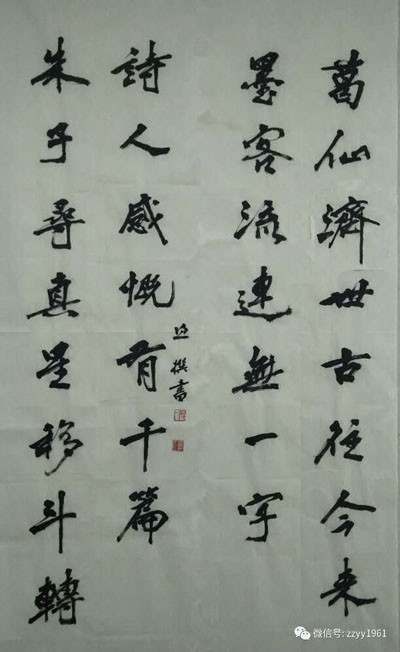 葛仙濟世古往今来
墨客流連無一字
朱子尋真星移斗轉
詩人感慨有千篇
撰書
微信号: zzyy1961